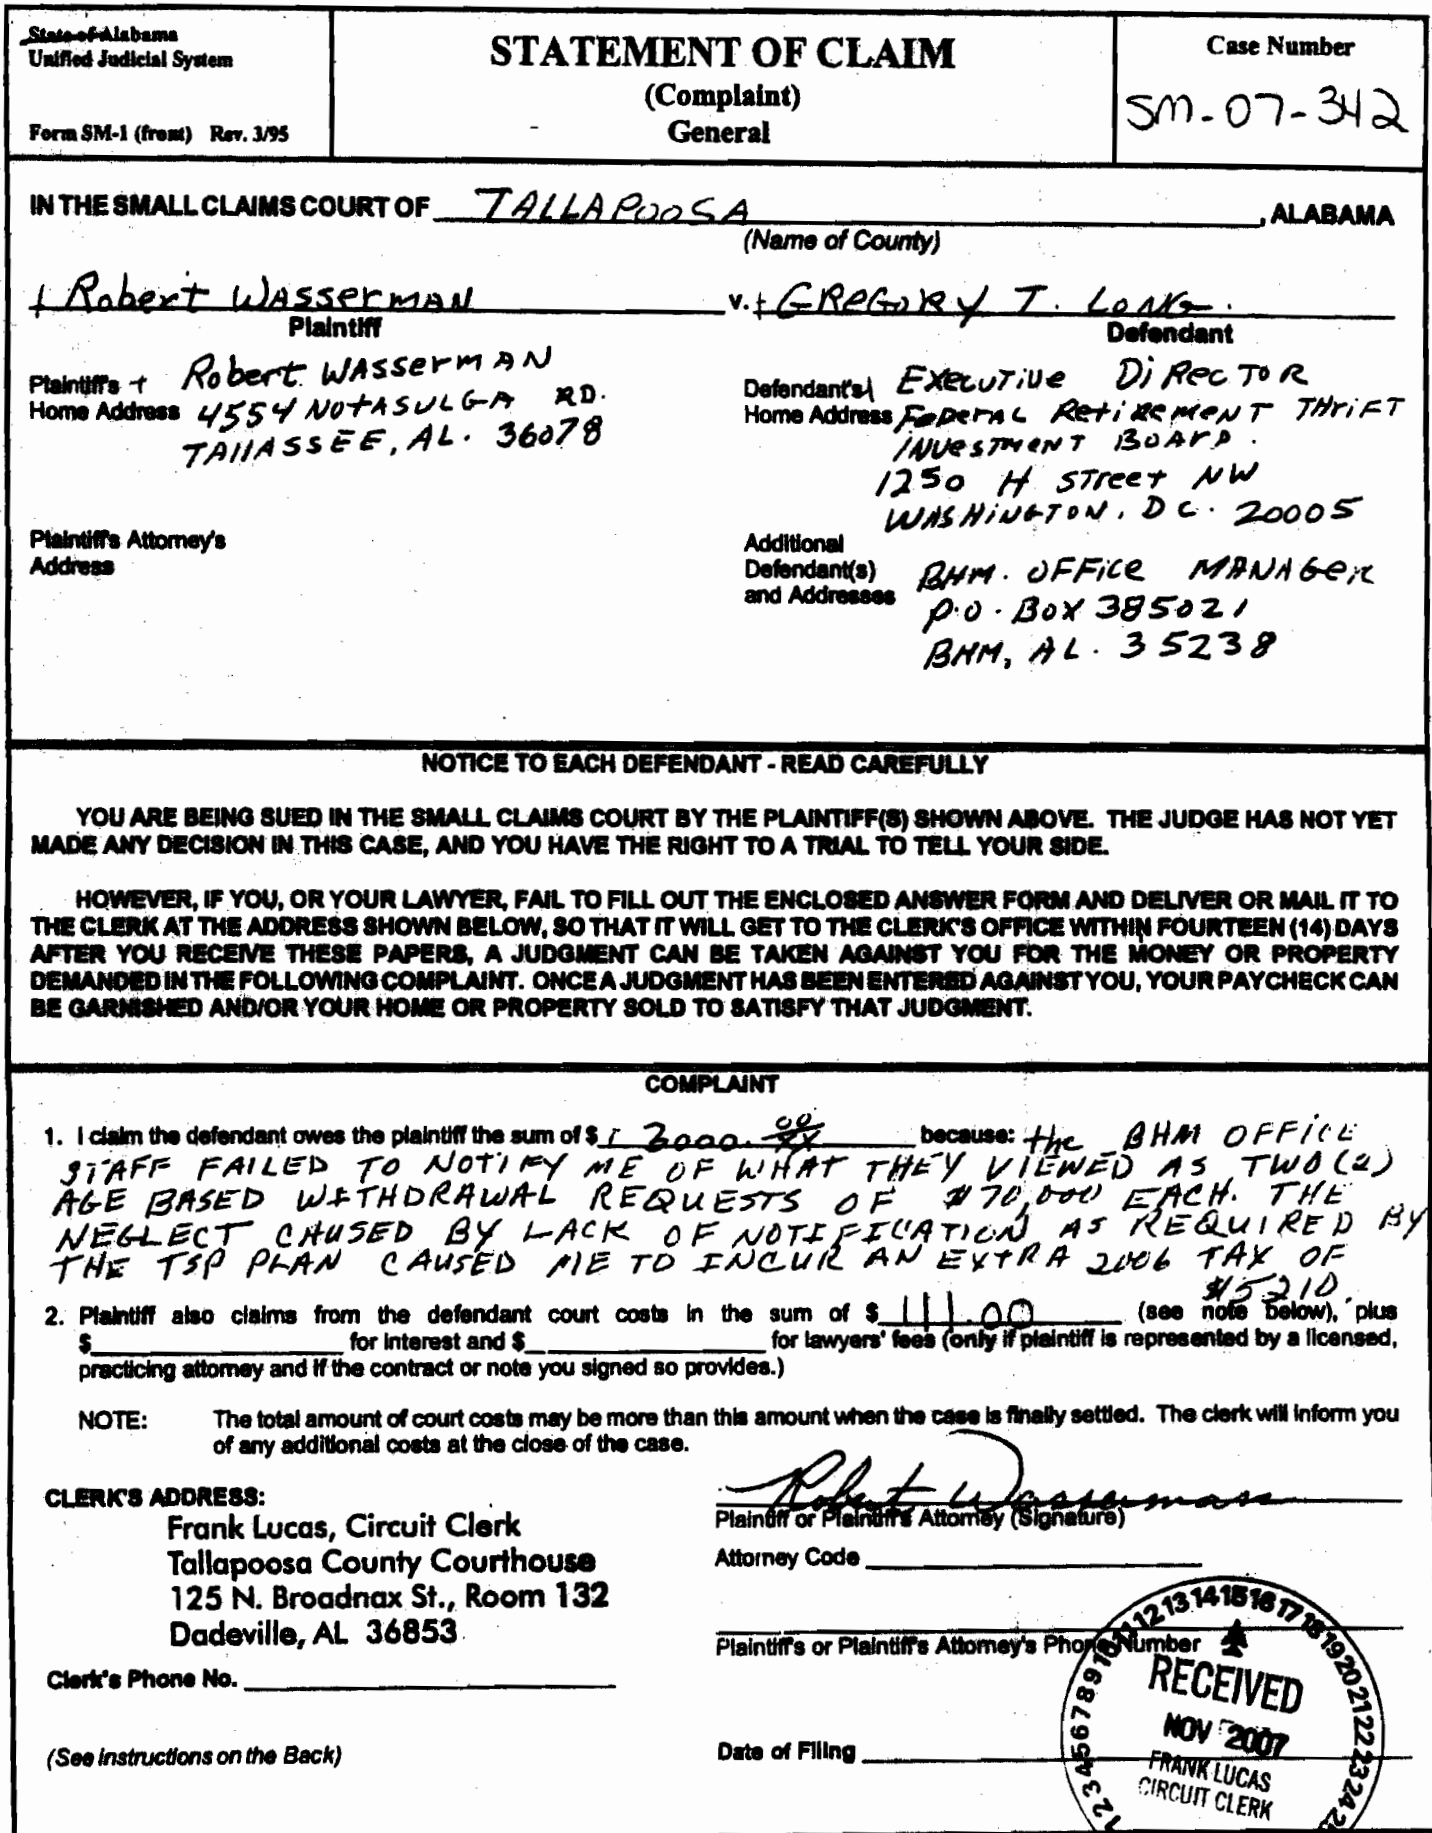 State of Alabama
Unified Judicial System
Form SM-1 (front) Rev. 3/95
STATEMENT OF CLAIM
(Complaint)
General
Case Number
SM-07-342
IN THE SMALL CLAIMS COURT OF TALLAPOOSA, ALABAMA
(Name of County)
Robert WASSERMAN v. GREGORY T. LONG.
Plaintiff
Defendant
Plaintiff's
Home Address
Robert WASSERMAN
4554 NOTASULGA RD.
TALLASSEE, AL. 36078
Defendant's
Home Address
EXECUTIVE DIRECTOR
FEDERAL RETIREMENT THRIFT
INVESTMENT BOARD.
1250 H STREET NW
WASHINGTON, DC. 20005
Plaintiff's Attorney's
Address
Additional
Defendant(s)
and Addresses
BHM. OFFICE MANAGER
P.O. BOX 385021
BHM, AL. 35238
NOTICE TO EACH DEFENDANT - READ CAREFULLY
YOU ARE BEING SUED IN THE SMALL CLAIMS COURT BY THE PLAINTIFF(S) SHOWN ABOVE. THE JUDGE HAS NOT YET
MADE ANY DECISION IN THIS CASE, AND YOU HAVE THE RIGHT TO A TRIAL TO TELL YOUR SIDE.
HOWEVER, IF YOU, OR YOUR LAWYER, FAIL TO FILL OUT THE ENCLOSED ANSWER FORM AND DELIVER OR MAIL IT TO
THE CLERK AT THE ADDRESS SHOWN BELOW, SO THAT IT WILL GET TO THE CLERK'S OFFICE WITHIN FOURTEEN (14) DAYS
AFTER YOU RECEIVE THESE PAPERS, A JUDGMENT CAN BE TAKEN AGAINST YOU FOR THE MONEY OR PROPERTY
DEMANDED IN THE FOLLOWING COMPLAINT. ONCE A JUDGMENT HAS BEEN ENTERED AGAINST YOU, YOUR PAYCHECK CAN
BE GARNISHED AND/OR YOUR HOME OR PROPERTY SOLD TO SATISFY THAT JUDGMENT.
COMPLAINT
1. I claim the defendant owes the plaintiff the sum of $ 3000. 00/XX because: the BHM OFFICE
STAFF FAILED TO NOTIFY ME OF WHAT THEY VIEWED AS TWO (2)
AGE BASED WITHDRAWAL REQUESTS OF $70,000 EACH. THE
NEGLECT CAUSED BY LACK OF NOTIFICATION AS REQUIRED BY
THE TSP PLAN CAUSED ME TO INCUR AN EXTRA 2006 TAX OF
$15210.
2. Plaintiff also claims from the defendant court costs in the sum of $ 111.00 (see note below), plus
$ for interest and $ for lawyers' fees (only if plaintiff is represented by a licensed,
practicing attorney and if the contract or note you signed so provides.)
NOTE: The total amount of court costs may be more than this amount when the case is finally settled. The clerk will inform you
of any additional costs at the close of the case.
CLERK'S ADDRESS:
Frank Lucas, Circuit Clerk
Tallapoosa County Courthouse
125 N. Broadnax St., Room 132
Dadeville, AL 36853
Clerk's Phone No.
(See instructions on the Back)
Robert Wasserman
Plaintiff or Plaintiff's Attorney (Signature)
Attorney Code
Plaintiff's or Plaintiff's Attorney's Phone Number
Date of Filing
1 2 3 4 5 6 7 8 9 10 11 12 13 14 15 16 17 18 19 20 21 22 23 24
RECEIVED
NOV 2007
FRANK LUCAS
CIRCUIT CLERK